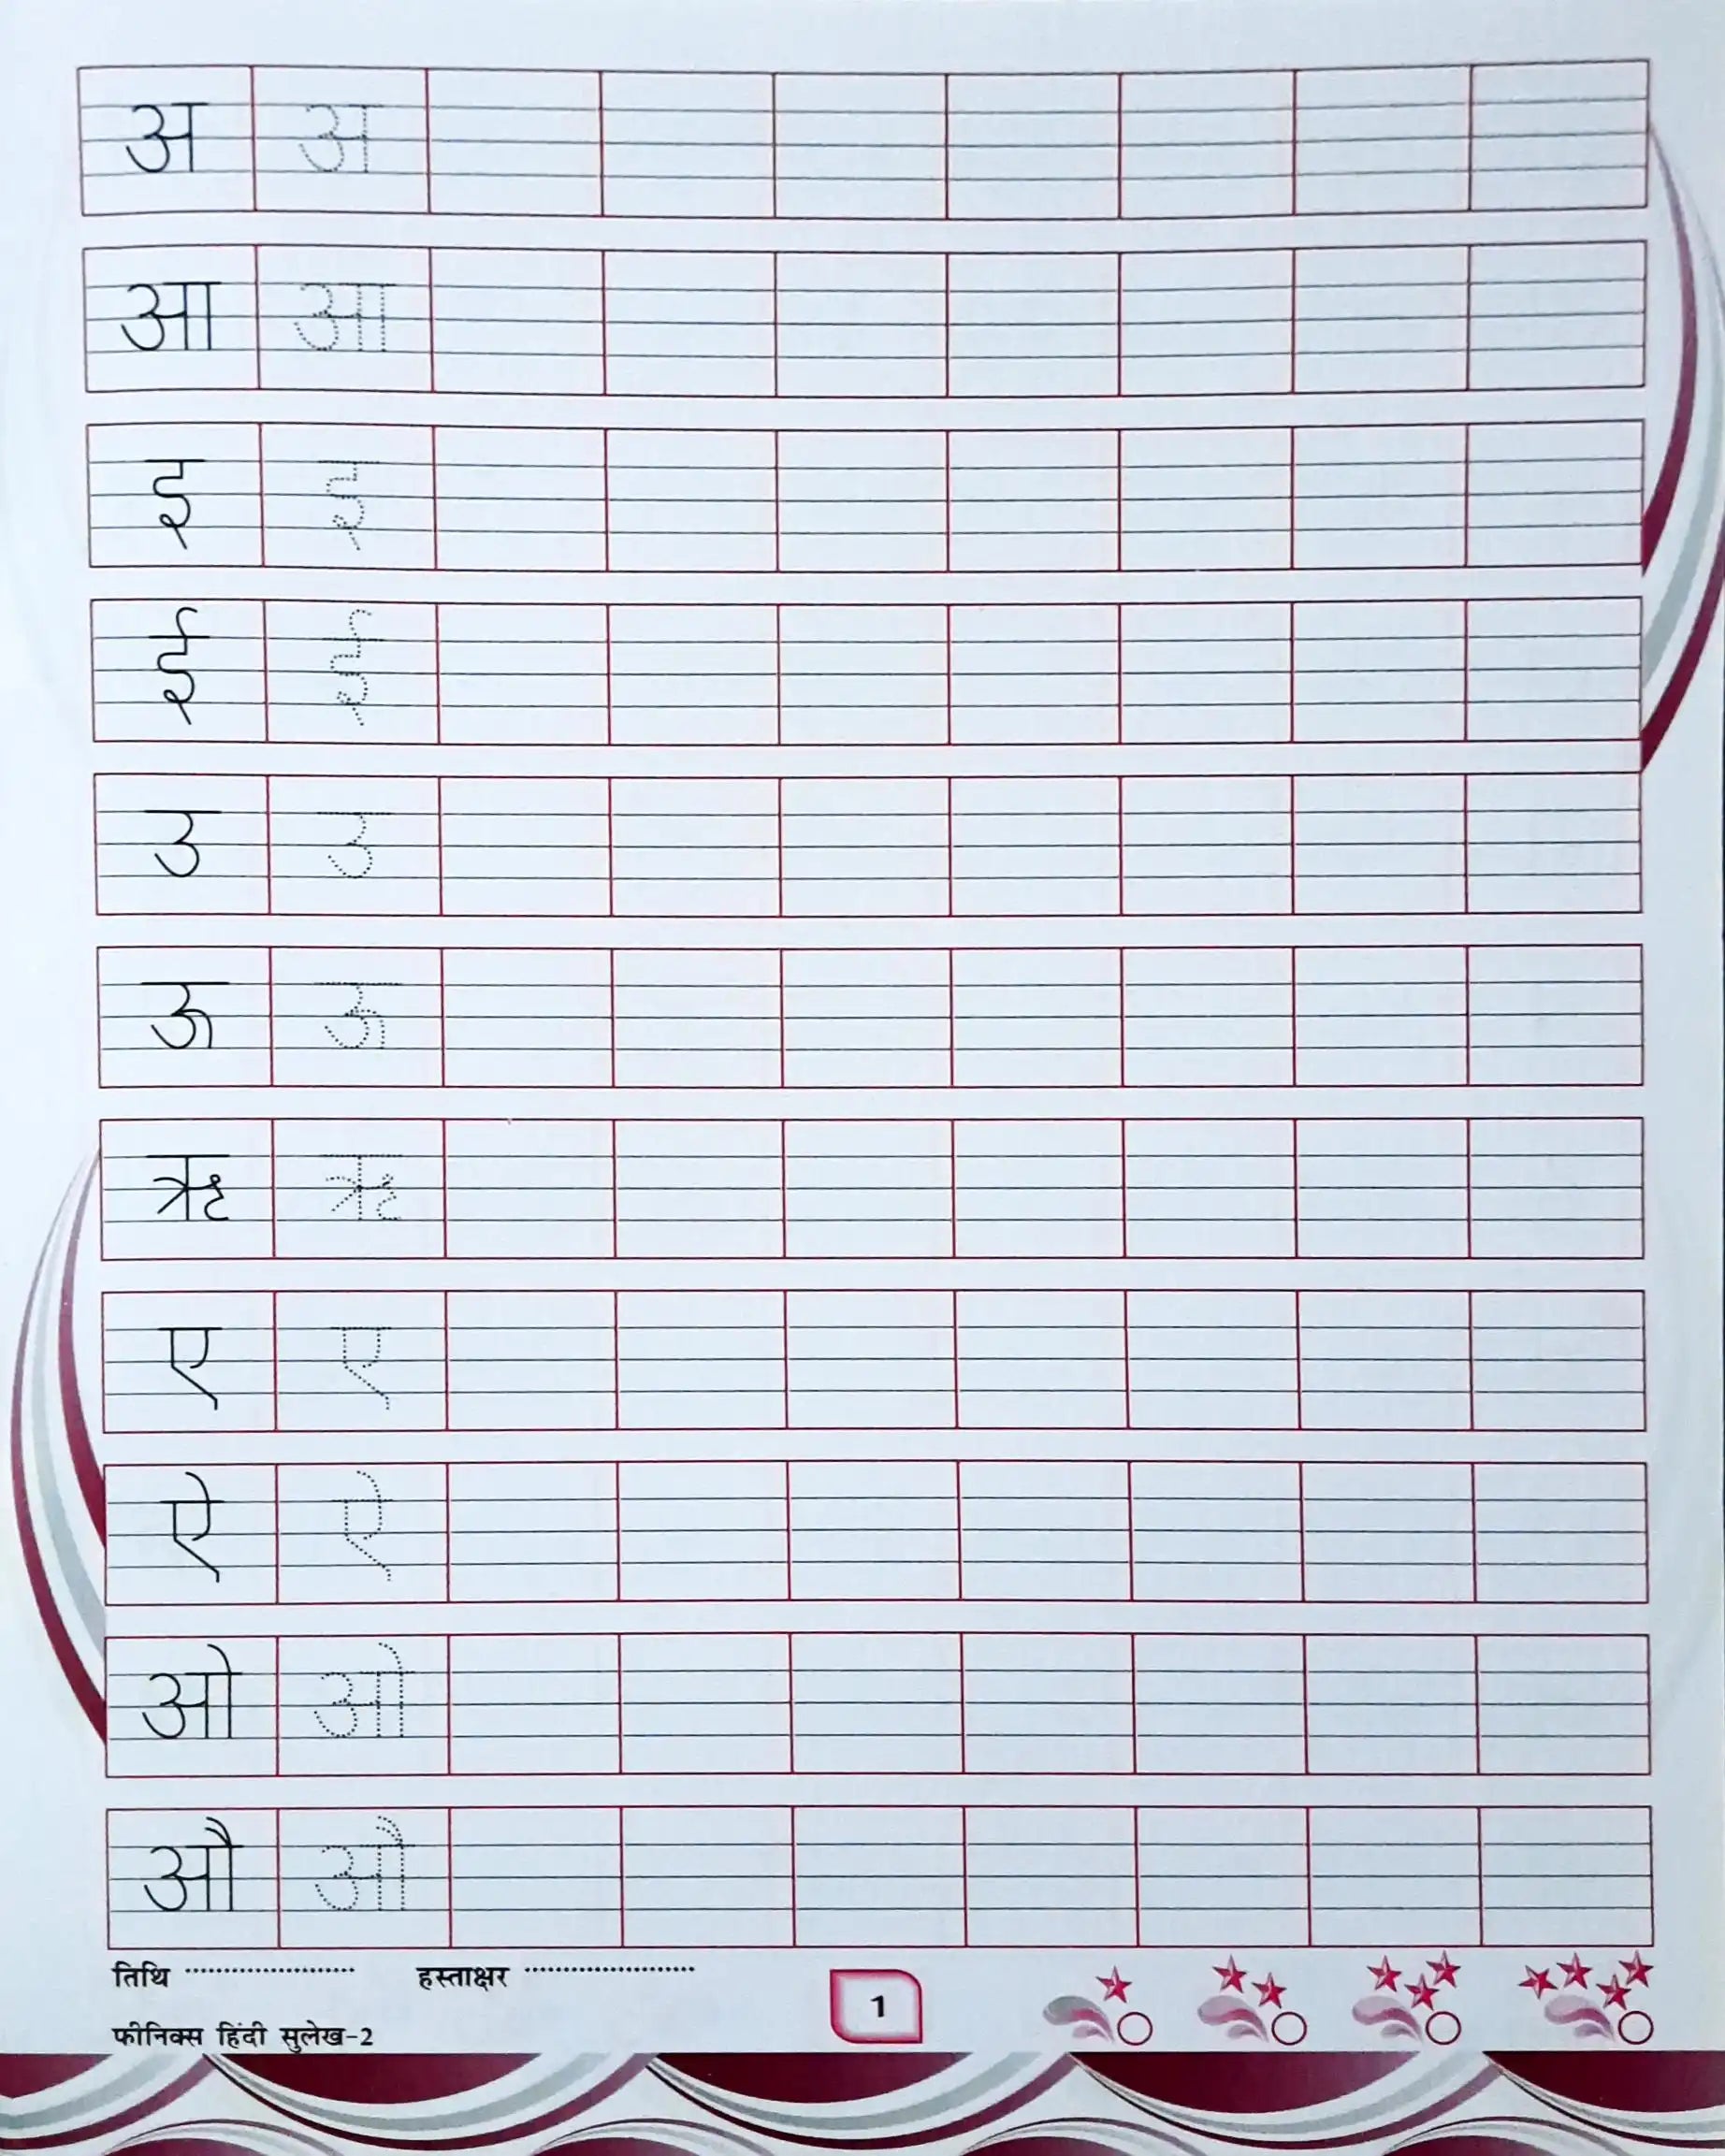 अ अ
आ आ
इ इ
ई ई
उ उ
ऊ ऊ
ऋ ऋ
ए ए
ऐ ऐ
ओ ओ
औ औ
तिथि ........................ हस्ताक्षर ........................
1
फीनिक्स हिंदी सुलेख-2